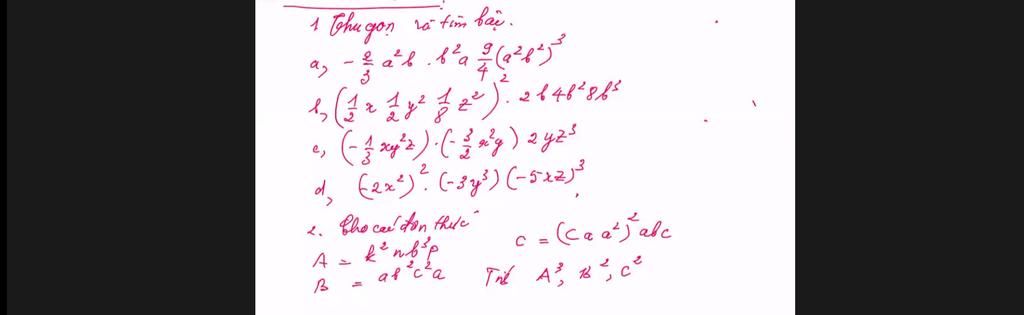 1 Thu gọn và tìm bậc.
a, - 2/3 a²b . b²a 9/4 (a²b²)³
b, (1/2 x 1/2 y² 1/8 z²)² . 2b 4b² 8b³
c, (-1/3 xy²z) . (-3/2 x²y) 2yz³
d, (-2x²)² . (-3y³) (-5xz)³
2. Cho các đơn thức
A = k²nb³p
B = ab²c²a
C = (Caa²)² abc
Tính A³, B², C²